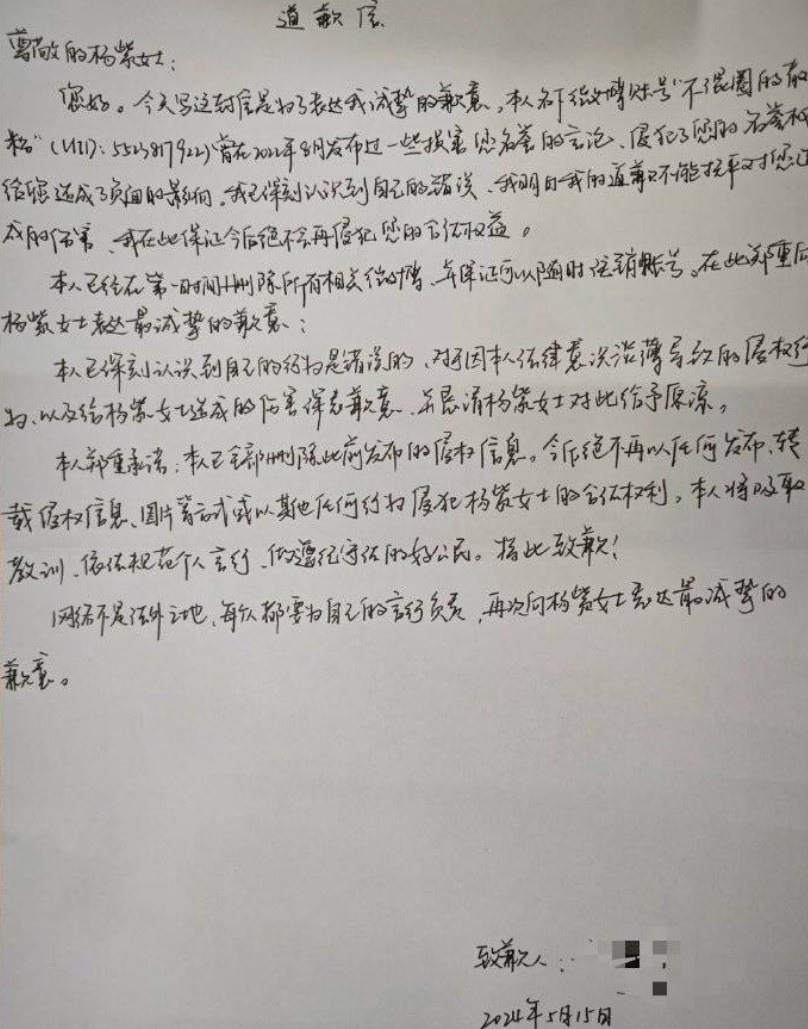 道歉信
尊敬的杨紫女士：
您好。今天写这封信是为了表达我诚挚的歉意，本人名下微博账号“不混圈的散
粉”（UID：5523817922）曾在2022年8月发布过一些损害您名誉的言论、侵犯了您的名誉权
给您造成了负面的影响。我已深刻认识到自己的错误、我明白我的道歉不能抚平对您造
成的伤害、我在此保证今后绝不会再侵犯您的合法权益。
本人已经在第一时间删除所有相关微博、并保证可以随时注销账号。在此郑重向
杨紫女士表达最诚挚的歉意：
本人已深刻认识到自己的行为是错误的、对于因本人法律意识淡薄导致的侵权行
为、以及给杨紫女士造成的伤害深表歉意、并恳请杨紫女士对此给予原谅。
本人郑重承诺：本人已全部删除此前发布的侵权信息。今后绝不再以任何发布、转
载侵权信息、图片等方式或以其他任何行为侵犯杨紫女士的合法权利。本人将吸取
教训、依法规范个人言行、做遵纪守法的好公民。特此致歉！
网络不是法外之地、每个人都要为自己的言行负责，再次向杨紫女士表达最诚挚的
歉意。
致歉人：
2024年5月15日